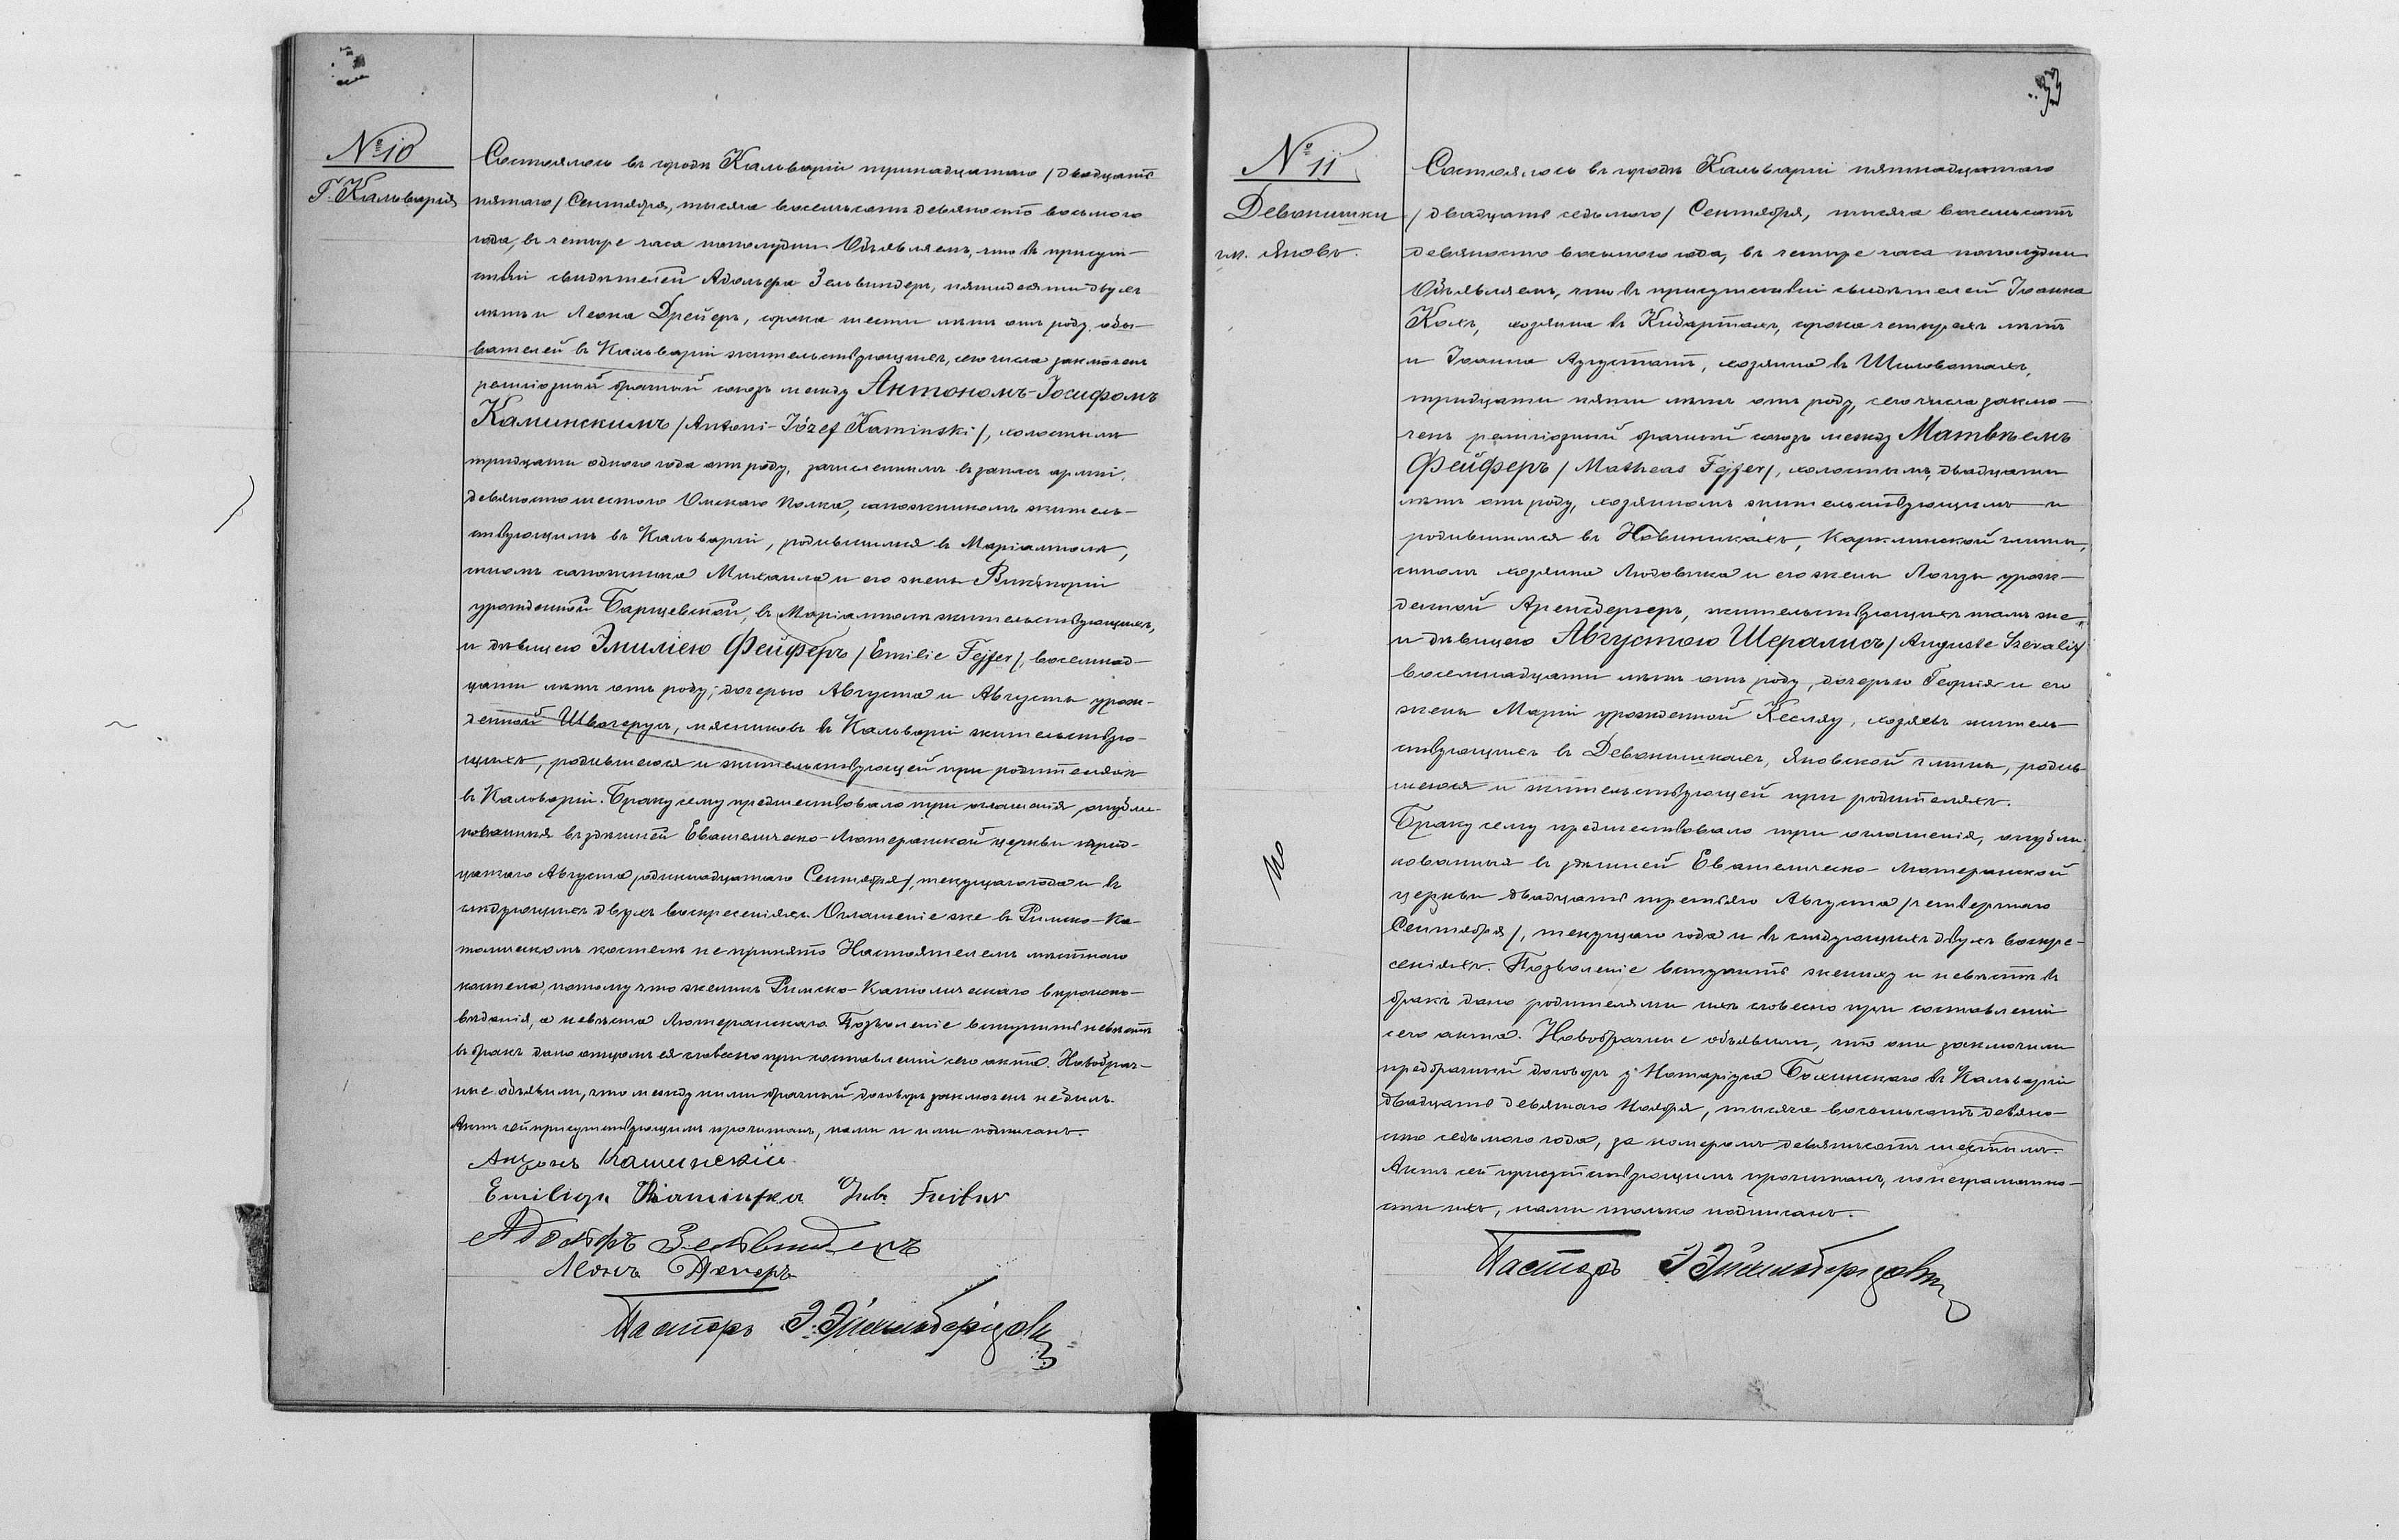 № 10
Г. Кальварія
Состоялось въ городѣ Кальваріи тринадцатаго /двадцать
пятаго/ Сентября, тысяча восемьсотъ девяносто восьмого
года, въ четыре часа пополудни. Объявляемъ, что въ присут-
ствіи свидѣтелей Адольфа Зельвиндеръ, пятидесяти двухъ
лѣтъ и Леона Дрейеръ, сорока шести лѣтъ отъ роду, обы-
вателей въ Кальваріи жительствующихъ, сего числа заключенъ
религіозный брачный союзъ между Антономъ-Іосифомъ
Каминскимъ /Antoni-Józef Kaminski/, холостымъ
тридцати одного года отъ роду, зачисленнымъ въ запасъ арміи,
девяносто шестого Омскаго полка, сапожникомъ житель-
ствующимъ въ Кальваріи, родившимся въ Маріамполѣ,
сыномъ сапожника Михаила и его жены Викторіи
урожденной Барщевской, въ Маріамполѣ жительствующихъ,
и дѣвицею Эмиліею Фейферъ /Emilie Fejfer/, восемнад-
цати лѣтъ отъ роду, дочерью Августа и Августы урож-
денной Швагерусъ, мясниковъ въ Кальваріи жительствую-
щихъ, родившеюся и жительствующей при родителяхъ
въ Кальваріи. Браку сему предшествовало три оглашенія, опубли-
кованныя въ здѣшней Евангелическо-Лютеранской церкви трид-
цатаго Августа /одиннадцатаго Сентября/, текущаго года и въ
слѣдующихъ двухъ воскресеніяхъ. Оглашеніе же въ Римско-Ка-
толическомъ костелѣ не принято Настоятелемъ мѣстнаго
костела, потому что женихъ Римско-Католическаго вѣроиспо-
вѣданія, а невѣста Лютеранскаго. Позволеніе вступить невѣстѣ
въ бракъ дано отцомъ ея словесно при составленіи сего акта. Новобрач-
ные объявили, что между ними брачный договоръ заключенъ не былъ.
Актъ сей присутствующимъ прочитанъ, нами и ими подписанъ.
Антонъ Каминскій
Emilia Kaminska
Адольфъ Зельвиндеръ
Леонъ Дрееръ
Пасторъ
№ 11
Девонишки
гм. Яновъ.
Состоялось въ городѣ Кальваріи пятнадцатаго
/двадцать седьмого/ Сентября, тысяча восемьсотъ
девяносто восьмого года, въ четыре часа пополудни.
Объявляемъ, что въ присутствіи свидѣтелей Іоанна
Кохъ, хозяина въ Кибартахъ, сорока четырехъ лѣтъ
и Іоанна Аугустатъ, хозяина въ Шиловотахъ,
тридцати пяти лѣтъ отъ роду, сего числа заклю-
ченъ религіозный брачный союзъ между Матвѣемъ
Фейферъ /Matheas Fejfer/, холостымъ, двадцати
лѣтъ отъ роду, хозяиномъ жительствующимъ и
родившимся въ Новиникахъ, Карклинской гмины,
сыномъ хозяина Людовика и его жены Луизы урож-
денной Арендбергеръ, жительствующихъ тамъ же,
и дѣвицею Августою Шералисъ /Auguste Szeralis/
восемнадцати лѣтъ отъ роду, дочерью Георгія и его
жены Маріи урожденной Кеслау, хозяевъ житель-
ствующихъ въ Девонишкахъ, Яновской гмины, родив-
шеюся и жительствующей при родителяхъ.
Браку сему предшествовало три оглашенія, опубли-
кованныя въ здѣшней Евангелическо-Лютеранской
церкви двадцать третьяго Августа /четвертаго
Сентября/, текущаго года и въ слѣдующихъ двухъ воскре-
сеніяхъ. Позволеніе вступить жениху и невѣстѣ въ
бракъ дано родителями ихъ словесно при составленіи
сего акта. Новобрачные объявили, что они заключили
предбрачный договоръ у Нотаріуса Бохинскаго въ Кальваріи
двадцать девятаго Ноября, тысяча восемьсотъ девяно-
сто седьмого года, за номеромъ девятьсотъ шестымъ.
Актъ сей присутствующимъ прочитанъ, по неграмотно-
сти ихъ, нами только подписанъ.
Пасторъ